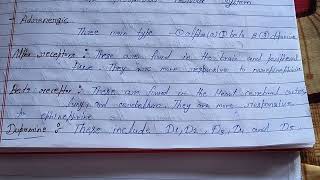 system
→ Adrenergic
Three main type - ① alpha(α) ② beta β ③ dopamine
Alpha receptors : These are found in the brain and peripheral
tissue. They are more responsive to norepinephrine
Beta receptor : These are found in the Heart cerebral cortex
lung, and cerebellum. They are more responsive
to ephinephrine
Dopamine : These include D1, D2, D3, D4 and D5.